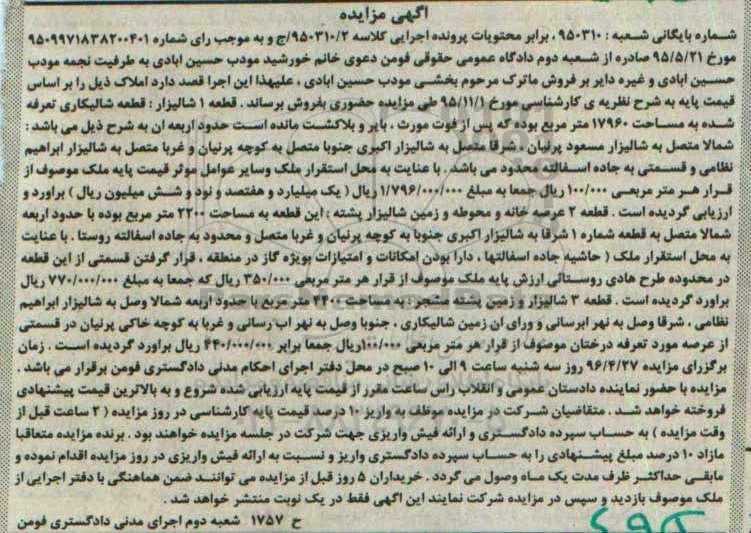 آگهی مزایده
شماره بایگانی شعبه : ۹۵۰۳۱۰ ، برابر محتویات پرونده اجرایی کلاسه ۹۵۰۳۱۰/۲/ج و به موجب رای شماره ۹۵۰۹۹۷۱۸۳۸۲۰۰۴۰۱
مورخ ۹۵/۵/۲۱ صادره از شعبه دوم دادگاه عمومی حقوقی فومن دعوی خانم خورشید مودب حسین ابادی به طرفیت نجمه مودب
حسین ابادی و غیره دایر بر فروش ماترک مرحوم بخشی مودب حسین ابادی ، علیهذا این اجرا قصد دارد املاک ذیل را بر اساس
قیمت پایه به شرح نظریه ی کارشناسی مورخ ۹۵/۱۱/۱ طی مزایده حضوری بفروش برساند . قطعه ۱ شالیزار : قطعه شالیکاری تعرفه
شده به مساحت ۱۷۹۶۰ متر مربع بوده که پس از فوت مورث ، بایر و بلاکشت مانده است حدود اربعه ان به شرح ذیل می باشد :
شمالا متصل به شالیزار مسعود پرنیان ، شرقا متصل به شالیزار اکبری جنوبا متصل به کوچه پرنیان و غربا متصل به شالیزار ابراهیم
نظامی و قسمتی به جاده اسفالته محدود می باشد . با عنایت به محل استقرار ملک وسایر عوامل موثر قیمت پایه ملک موصوف از
قرار هر متر مربعی ۱۰۰/۰۰۰ ریال جمعا به مبلغ ۱/۷۹۶/۰۰۰/۰۰۰ ریال ( یک میلیارد و هفتصد و نود و شش میلیون ریال ) براورد و
ارزیابی گردیده است . قطعه ۲ عرصه خانه و محوطه و زمین شالیزار پشته : این قطعه به مساحت ۲۲۰۰ متر مربع بوده با حدود اربعه
شمالا متصل به قطعه شماره ۱ شرقا به شالیزار اکبری جنوبا به کوچه پرنیان و غربا متصل و محدود به جاده اسفالته روستا . با عنایت
به محل استقرار ملک ( حاشیه جاده اسفالتها ، دارا بودن امکانات و امتیازات بویژه گاز در منطقه ، قرار گرفتن قسمتی از این قطعه
در محدوده طرح هادی روستائی ارزش پایه ملک موصوف از قرار هر متر مربعی ۳۵۰/۰۰۰ ریال که جمعا به مبلغ ۷۷۰/۰۰۰/۰۰۰ ریال
براورد گردیده است . قطعه ۳ شالیزار و زمین پشته مشجر: به مساحت ۴۴۰۰ متر مربع با حدود اربعه شمالا وصل به شالیزار ابراهیم
نظامی ، شرقا وصل به نهر ابرسانی و ورای ان زمین شالیکاری ، جنوبا وصل به نهر اب رسانی و غربا به کوچه خاکی پرنیان در قسمتی
از عرصه مورد تعرفه درختان موصوف از قرار هر متر مربعی ۱۰۰/۰۰۰ریال جمعا برابر ۴۴۰/۰۰۰/۰۰۰ ریال براورد گردیده است . زمان
برگزرای مزایده ۹۶/۴/۲۷ روز سه شنبه ساعت ۹ الی ۱۰ صبح در محل دفتر اجرای احکام مدنی دادگستری فومن برقرار می باشد .
مزایده با حضور نماینده دادستان عمومی و انقلاب راس ساعت مقرر از قیمت پایه ارزیابی شده شروع و به بالاترین قیمت پیشنهادی
فروخته خواهد شد . متقاضیان شرکت در مزایده موظف به واریز ۱۰ درصد قیمت پایه کارشناسی در روز مزایده ( ۲ ساعت قبل از
وقت مزایده ) به حساب سپرده دادگستری و ارائه فیش واریزی جهت شرکت در جلسه مزایده خواهند بود . برنده مزایده متعاقبا
مازاد ۱۰ درصد مبلغ پیشنهادی را به حساب سپرده دادگستری واریز و نسبت به ارائه فیش واریزی در روز مزایده اقدام نموده و
مابقی حداکثر ظرف مدت یک ماه وصول می گردد . خریداران ۵ روز قبل از مزایده می توانند ضمن هماهنگی با دفتر اجرایی از
ملک موصوف بازدید و سپس در مزایده شرکت نمایند این اگهی فقط در یک نوبت منتشر خواهد شد .
ح ۱۷۵۷ شعبه دوم اجرای مدنی دادگستری فومن